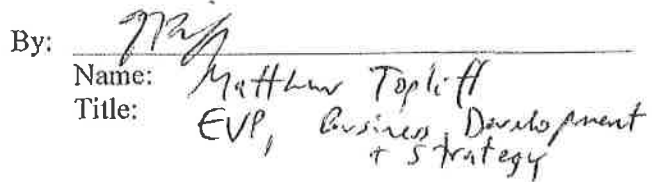 By:
Name: Matthew Topliff
Title: EVP, Business Development
+ Strategy